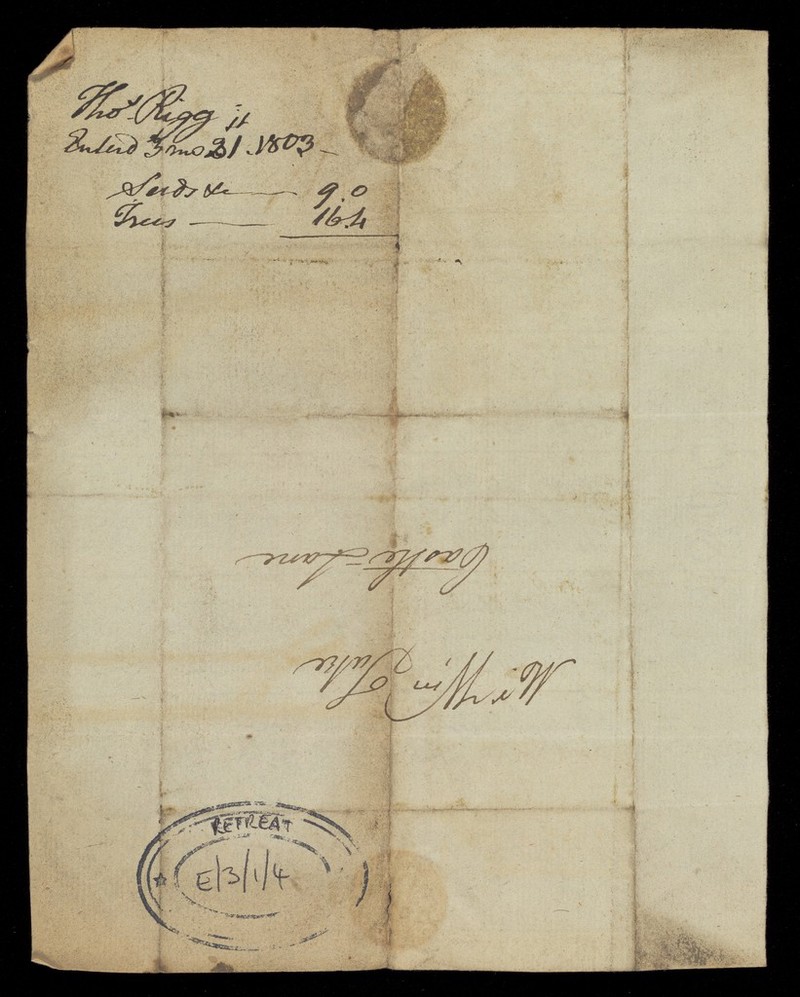 Thos. Rigg
Enterd 3 mo 31. 1803
Seeds &c — 9.0
Trees — 16.4
Mr. Wm Tuke
Castle-Lane
RETREAT
E/3/1/4